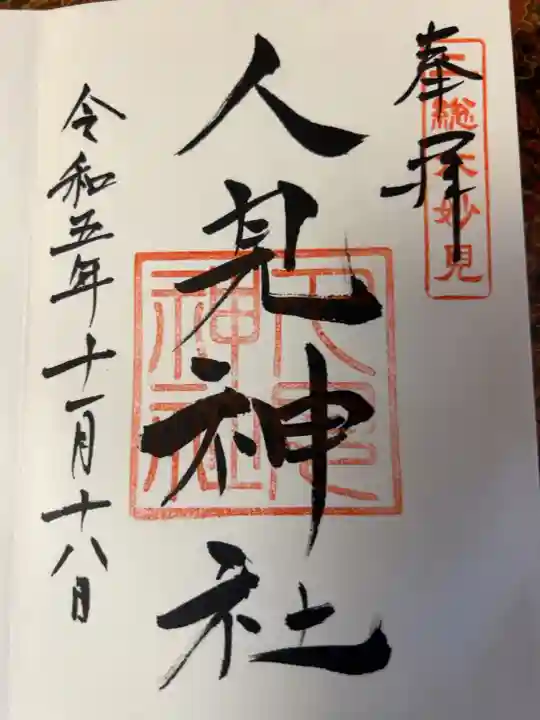 奉拝
二総大妙見
人見神社
人見神社
令和五年十一月十八日